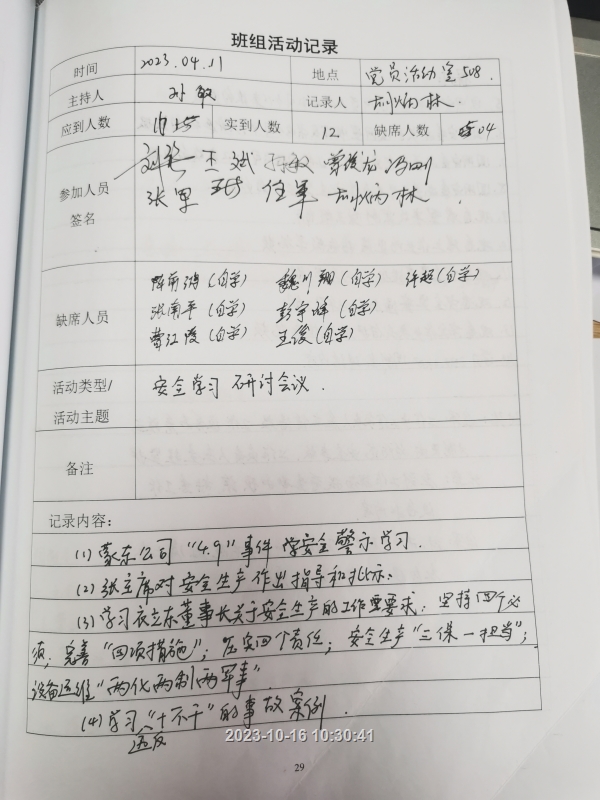 班组活动记录
时间 2023.04.11 地点 党员活动室508.
主持人 孙敏 记录人 林.
应到人数 实到人数 12 缺席人数 04
参加人员
签名
张 任军 林.
缺席人员
(自学) 魏川翔(自学) 许超(自学)
洪南平(自学) 彭宇峰(自学)
曹红霞(自学) 王俊(自学)
活动类型/
活动主题
安全学习 研讨会议.
备注
记录内容:
(1)蒙东公司"4.9"事件 学安全警示学习.
(2)张主席对安全生产作出指导和批示.
(3)学习衣立东董事长关于安全生产的工作重要求:坚持四个必
须;完善"四项措施";压实四个责任;安全生产"三保一担当";
设备运维"两化两制两军事".
(4)学习违反"十不干"的事故案例.
2023-10-16 10:30:41
29